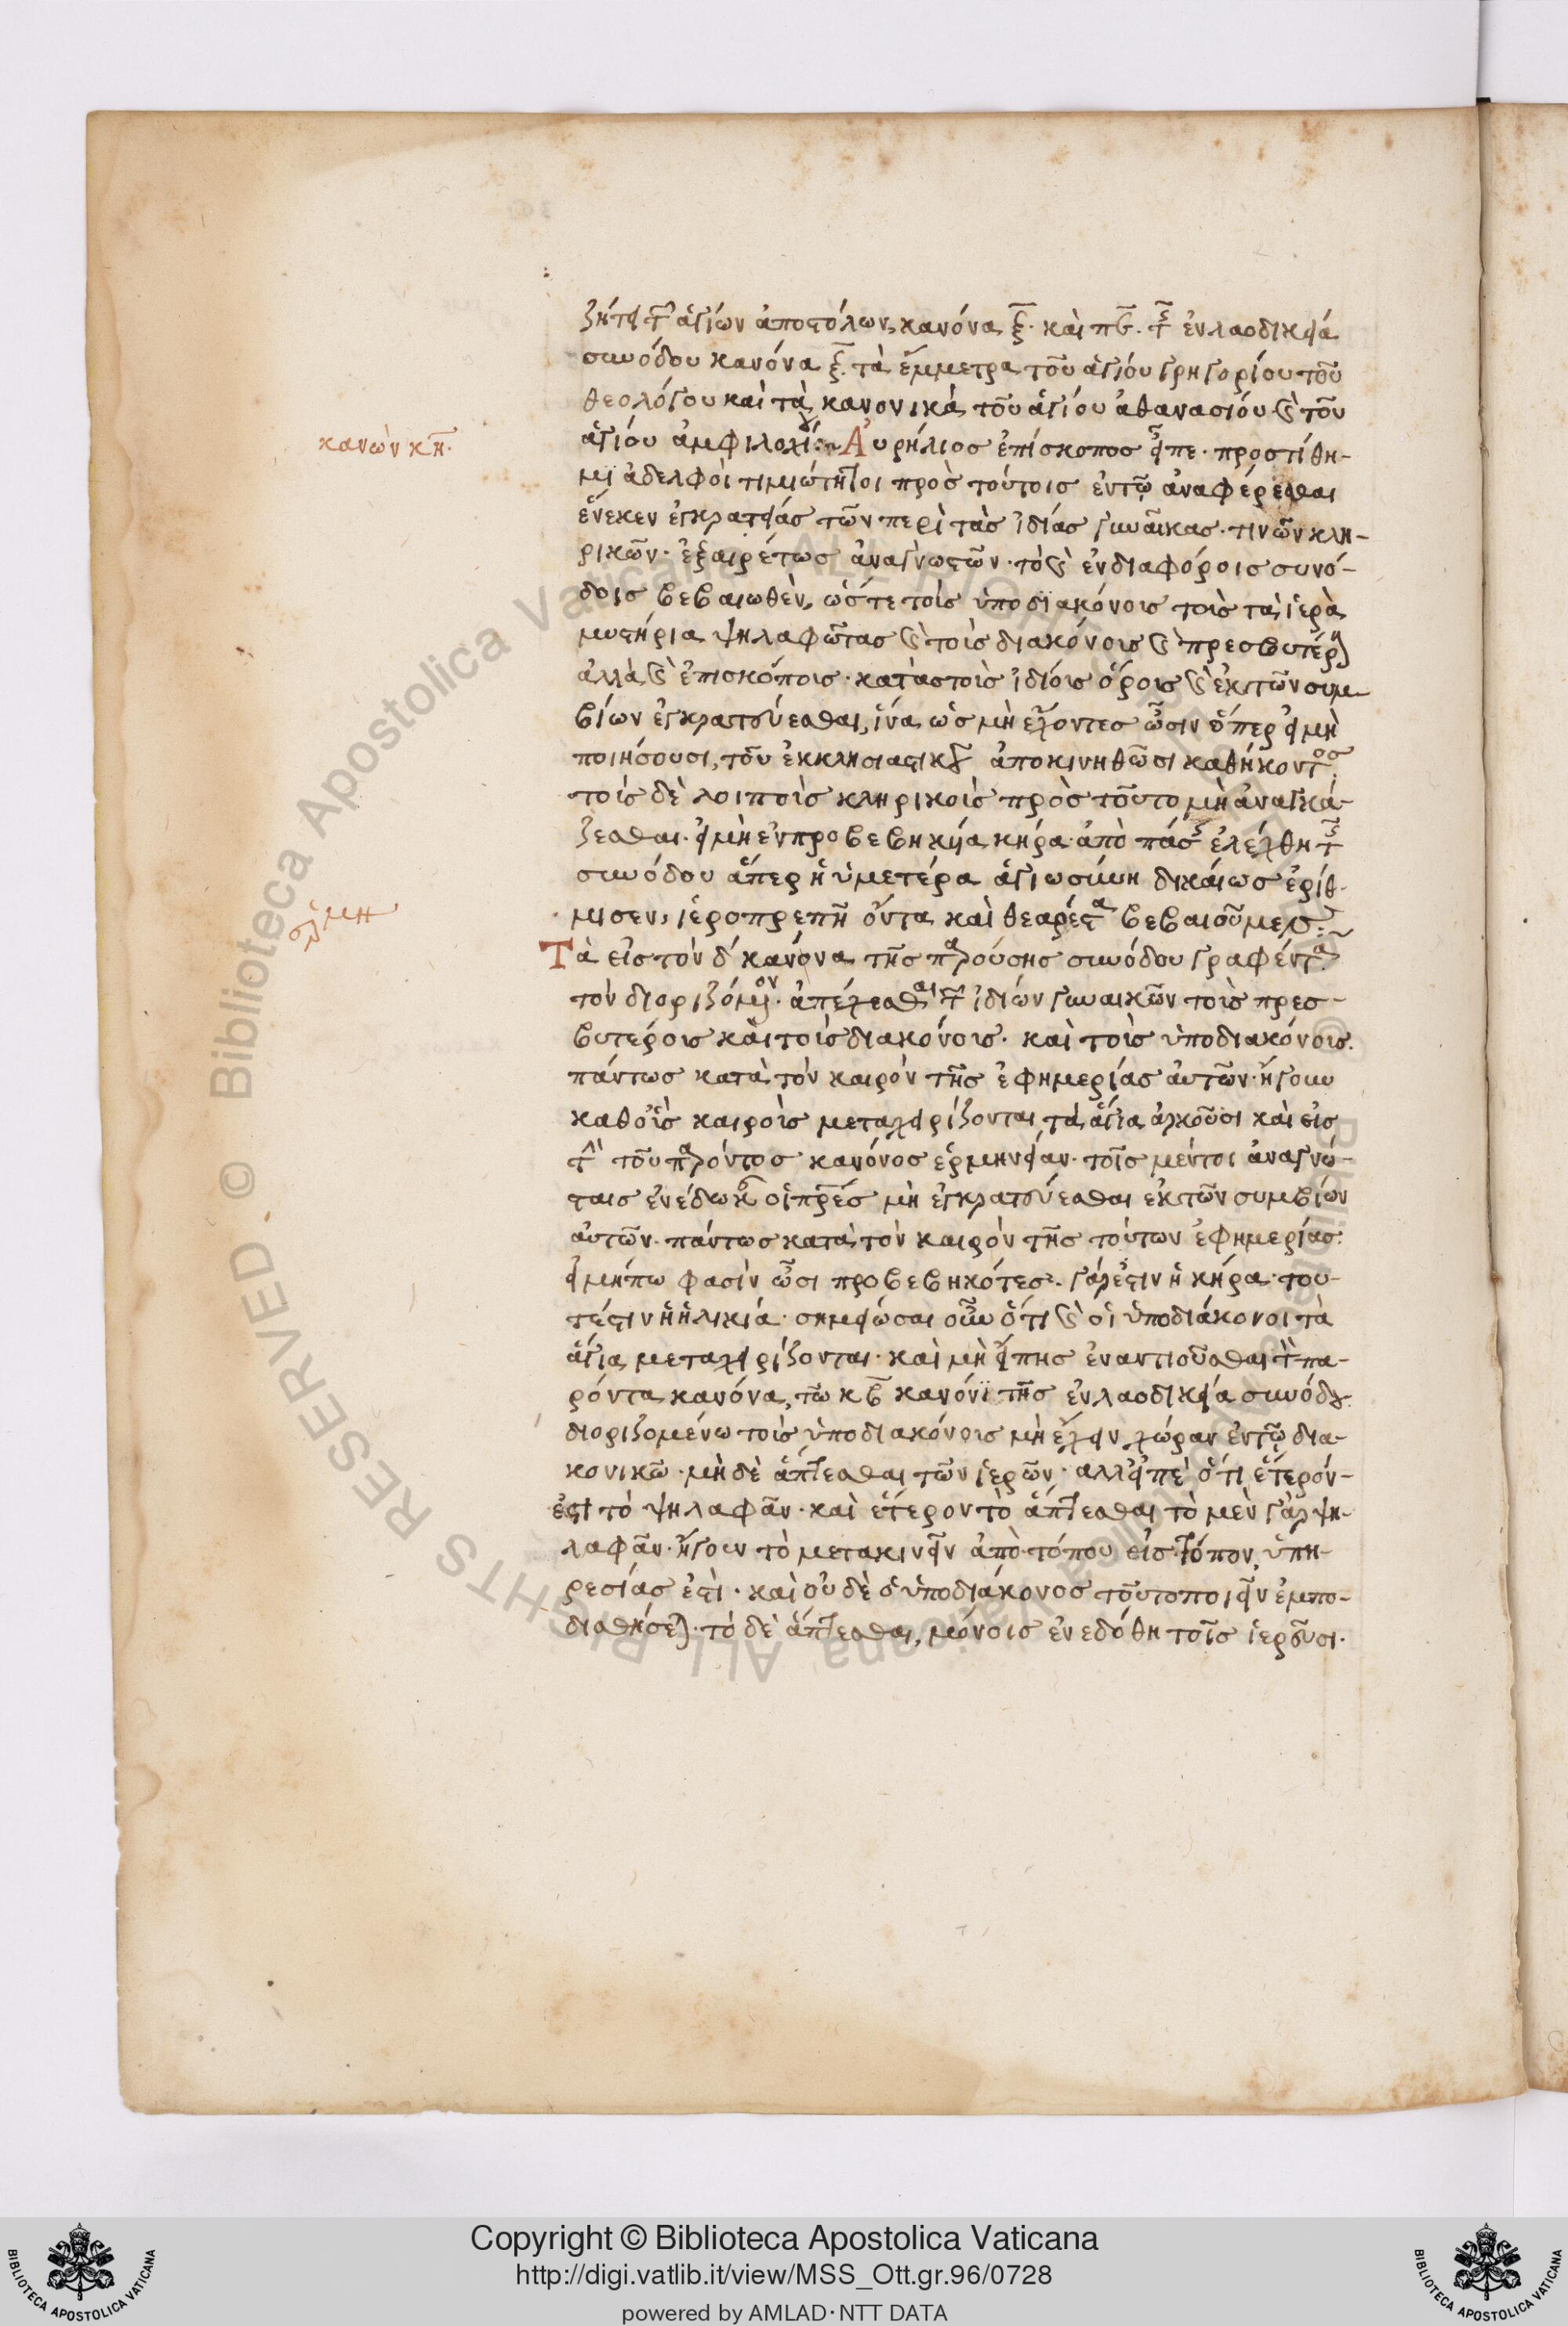 ζήτει τῶν ἁγίων ἀποστόλων κανόνα ξ. καὶ πε. τῆς ἐν λαοδικεία
συνόδου κανόνα ξ. τὰ ἔμμετρα τοῦ ἁγίου γρηγορίου τοῦ
θεολόγου καὶ τὰ κανονικὰ τοῦ ἁγίου ἀθανασίου καὶ τοῦ
κανὼν κη.
ἁγίου ἀμφιλοχίου:~ Αὐρήλιος ἐπίσκοπος εἶπε· προστίθη-
μι ἀδελφοὶ τιμιώτατοι πρὸς τούτοις ἐν τῷ ἀναφέρεσθαι
ἕνεκεν ἐγκρατείας τῶν περὶ τὰς ἰδίας γυναῖκας· τινῶν κλη-
ρικῶν· ἐξαιρέτως ἀναγνωστῶν· τὸ καὶ ἐν διαφόροις συνό-
δοις βεβαιωθὲν, ὥστε τοῖς ὑποδιακόνοις τοῖς τὰ ἱερὰ
μυστήρια ψηλαφῶντας καὶ τοῖς διακόνοις καὶ πρεσβυτέροις
ἀλλὰ καὶ ἐπισκόποις· κατὰ τοῖς ἰδίοις ὅροις καὶ ἐκ τῶν συμ
βίων ἐγκρατεύεσθαι, ἵνα ὡς μὴ ἔχοντες ὦσιν ὅπερ εἰ μὴ
ποιήσουσι, τοῦ ἐκκλησιαστικοῦ ἀποκινηθῶσι καθήκοντος.
τοῖς δὲ λοιποῖς κληρικοῖς πρὸς τοῦτο μὴ ἀναγκά-
ζεσθαι· εἰ μὴ ἐν προβεβηκυία κήρα· ἀπὸ πάσης ἐλέχθη τῆς
συνόδου ἅπερ ἡ ὑμετέρα ἁγιωσύνη δικαίως ἐρίθ-
μισεν, ἱεροπρεπῆ ὄντα καὶ θεάρεστα βεβαιοῦμεν:~
Τὰ εἰς τὸν δ κανόνα τῆς παρούσης συνόδου γραφέντα
τὸν διοριζόμενον· ἀπέχεσθαι τῶν ἰδίων γυναικῶν τοῖς πρεσ-
βυτέροις καὶ τοῖς διακόνοις· καὶ τοῖς ὑποδιακόνοις.
πάντως κατὰ τὸν καιρὸν τῆς ἐφημερίας αὐτῶν· ἤγουν
καθ οἷς καιροῖς μεταχειρίζονται τὰ ἅγια ἀρκοῦσι καὶ εἰς
τὴν τοῦ παρόντος κανόνος ἑρμηνείαν· τοῖς μέντοι ἀναγνώ-
σταις ἐνέδωκαν οἱ πρες μὴ ἐγκρατεύεσθαι ἐκ τῶν συμβίων
αὐτῶν· πάντως κατὰ τὸν καιρὸν τῆς τούτων ἐφημερίας·
εἰ μήπω φασὶν ὦσι προβεβηκότες· γάρ ἐστιν ἡ κήρα· του-
τέστιν ἡ ἡλικία· σημείωσαι οὖν ὅτι καὶ οἱ ὑποδιάκονοι τὰ
ἅγια μεταχειρίζονται· καὶ μὴ εἴπης ἐναντιοῦσθαι τὸν πα-
ρόντα κανόνα, τῶ κβ κανόνι τῆς ἐν λαοδικεία συνόδου
διοριζομένω τοῖς ὑποδιακόνοις μὴ ἔχειν χώραν ἐν τῷ δια-
κονικῶ· μὴ δὲ ἅπτεσθαι τῶν ἱερῶν· ἀλλ εἰπὲ ὅτι ἕτερόν-
ἐστι τὸ ψηλαφᾶν· καὶ ἕτερον τὸ ἅπτεσθαι τὸ μὲν γὰρ ψη-
λαφᾶν· ἤγουν τὸ μετακινεῖν ἀπὸ τόπου εἰς τόπον, ὑπη-
ρεσίας ἐστὶ· καὶ οὐδὲ ὁ ὑποδιάκονος τοῦτο ποιεῖν ἐμπο-
δισθήσεται· τὸ δὲ ἅπτεσθαι, μόνοις ἐνεδόθη τοῖς ἱερεῦσι·
Copyright © Biblioteca Apostolica Vaticana
http://digi.vatlib.it/view/MSS_Ott.gr.96/0728
powered by AMLAD·NTT DATA
BIBLIOTECA APOSTOLICA VATICANA
BIBLIOTECA APOSTOLICA VATICANA